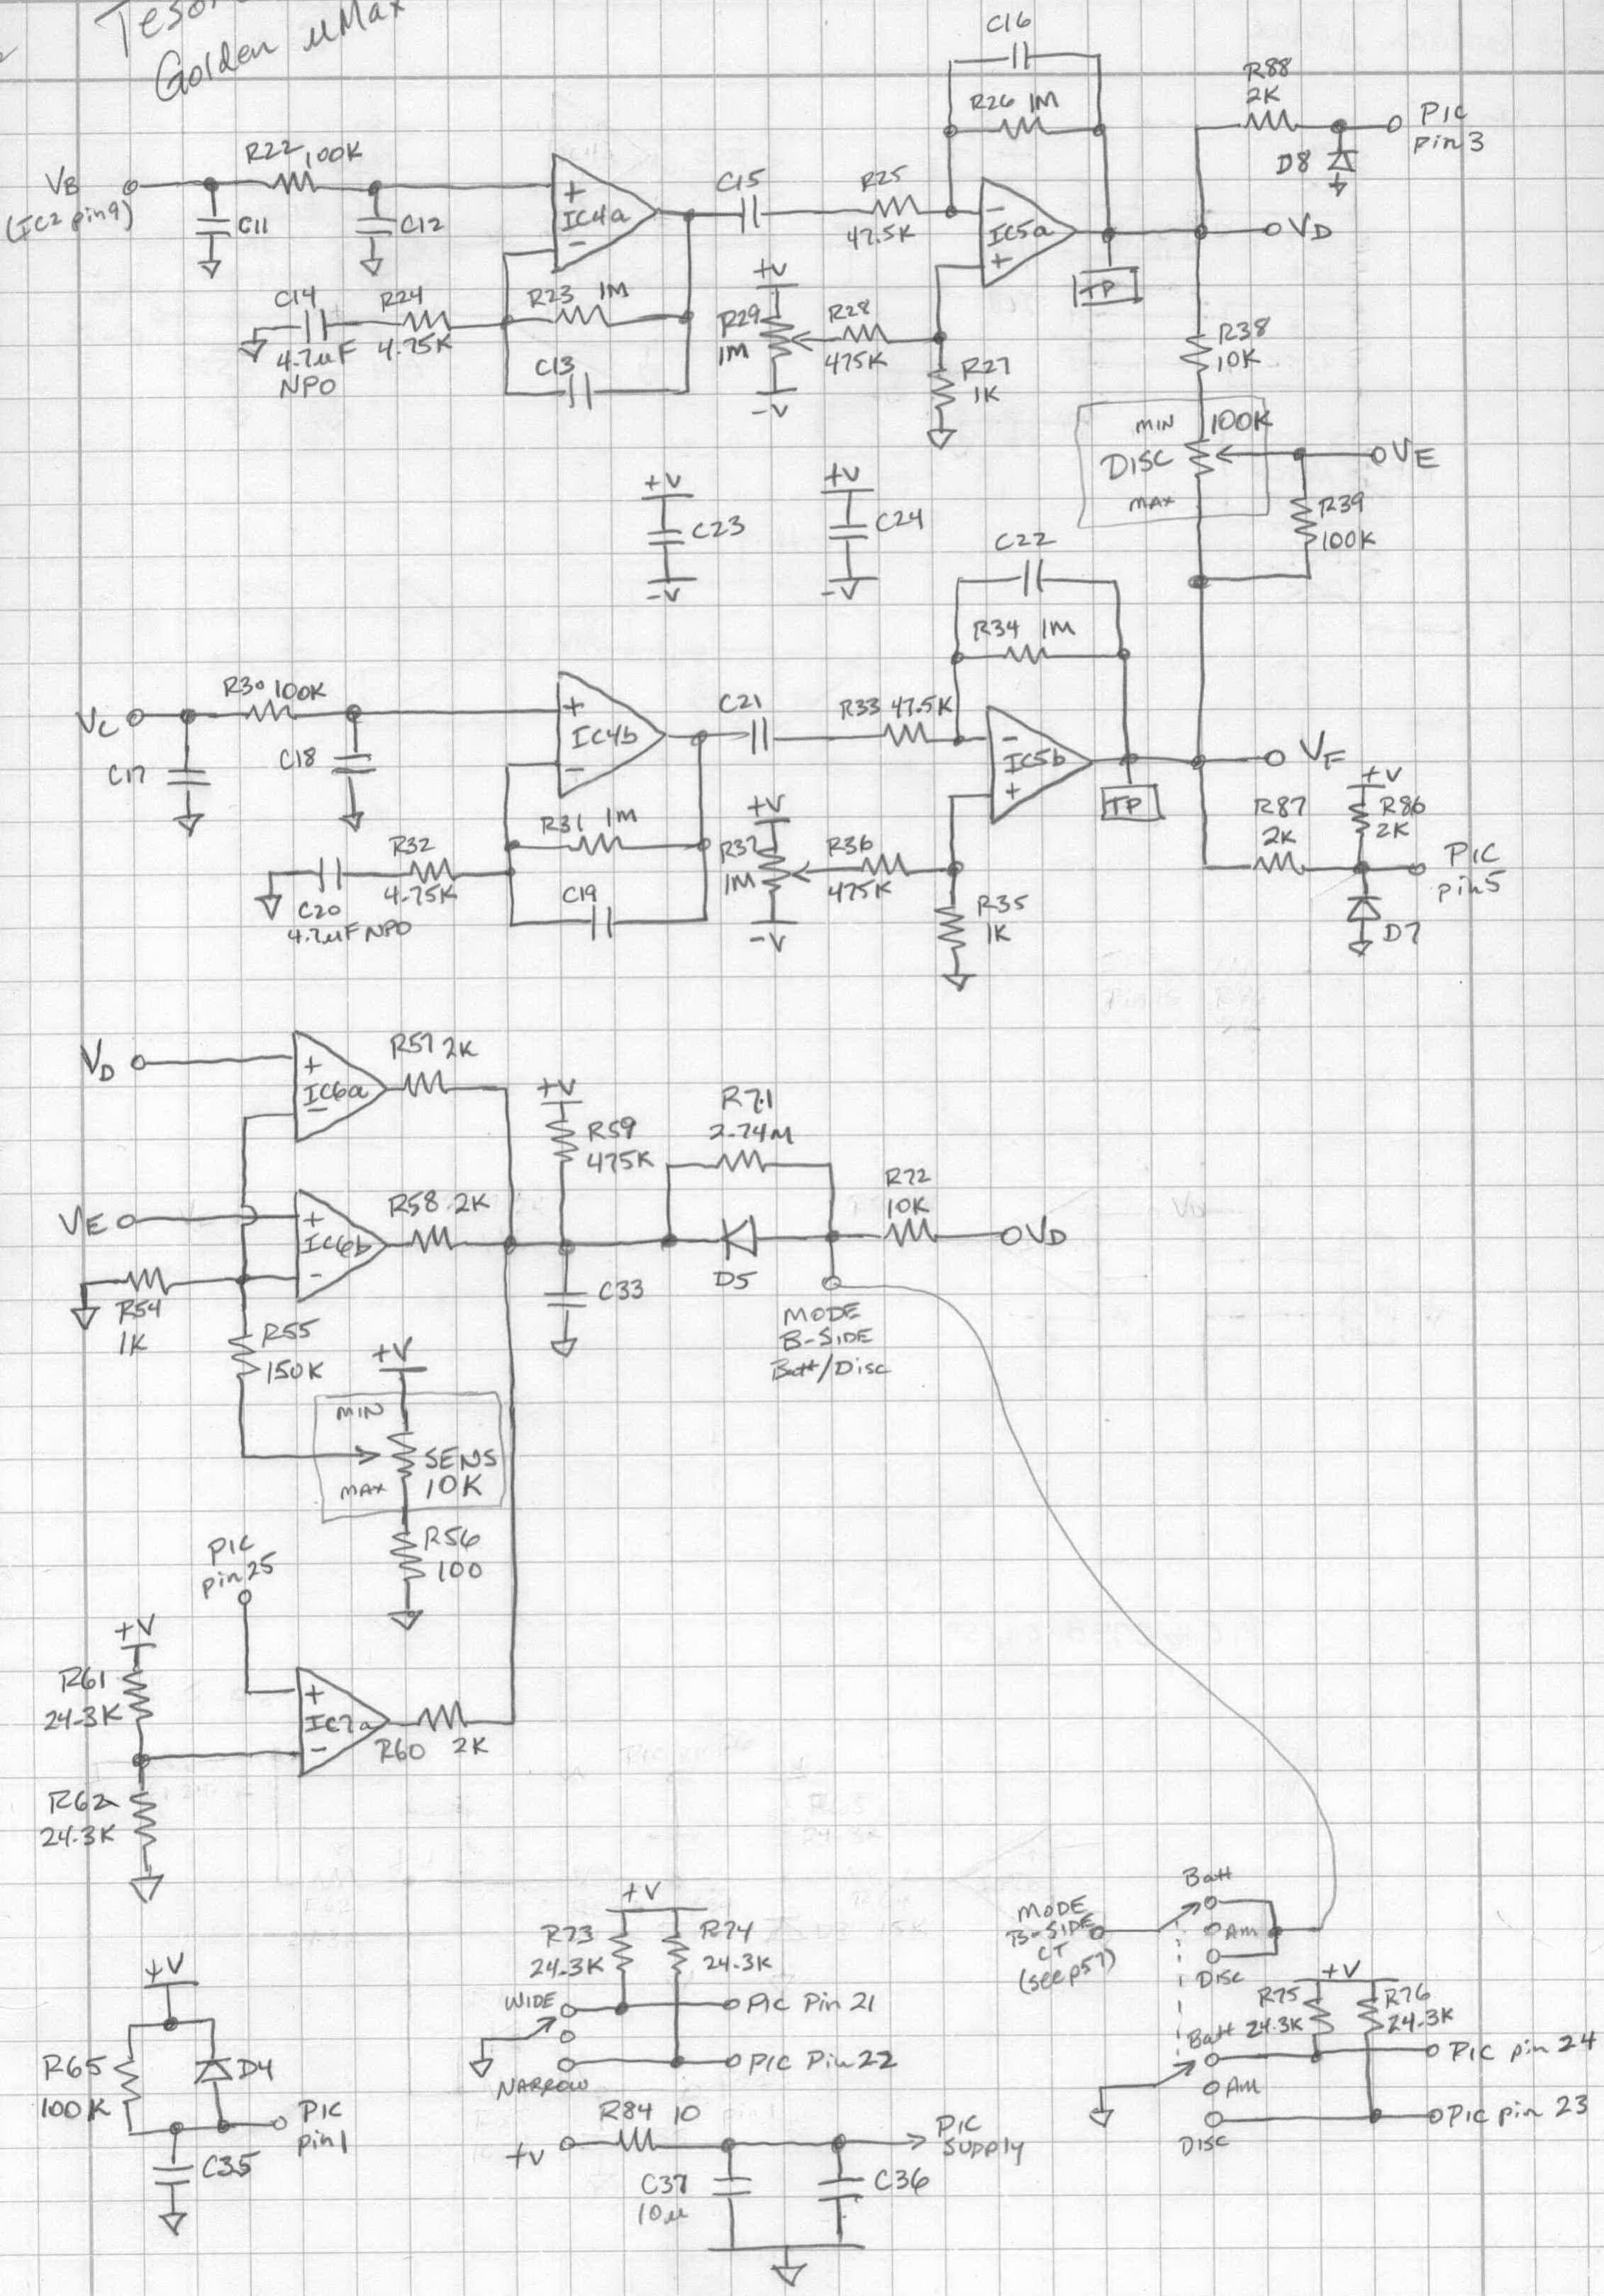 Golden µMax
C16
R26 1M
R88
2K
PIC
pin 3
D8
R22 100K
VB
(IC2 pin9)
C11
C12
+
IC4a
-
C15
R25
47.5K
-
IC5a
+
VD
TP
C14
4.7uF
NPO
R24
4.75K
R23 1M
C13
+V
R29
1M
-V
R28
475K
R27
1K
R38
10K
MIN
DISC
MAX
100K
VE
R39
100K
+V
C23
-V
+V
C24
-V
C22
R34 1M
R30 100K
VC
C17
C18
+
IC4b
-
C21
R33 47.5K
-
IC5b
+
VF
TP
+V
R86
2K
R87
2K
PIC
pin5
D7
R32
4.75K
C20
4.7uF NPO
R31 1M
C19
+V
R37
1M
-V
R36
475K
R35
1K
VD
+
IC6a
-
R57 2K
+V
R59
475K
R71
2.74M
R72
10K
VD
VE
+
IC6b
-
R58 2K
C33
D5
MODE
B-SIDE
Batt/Disc
R54
1K
R55
150K
+V
MIN
SENS
10K
MAX
R56
100
PIC
pin25
+V
R61
24.3K
+
IC7a
-
R60 2K
R62
24.3K
+V
R73
24.3K
R74
24.3K
WIDE
PIC Pin 21
PIC Pin 22
NARROW
MODE
B-SIDE
CT
(see p57)
Batt
Am
DISC
+V
R75
24.3K
R76
24.3K
Batt
PIC pin 24
Am
PIC pin 23
DISC
+V
R65
100K
D4
PIC
pin1
C35
R84 10
+V
PIC
SUPPLY
C37
10u
C36